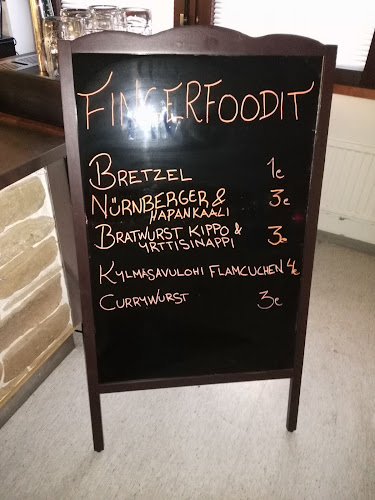 FINGERFOODIT
BRETZEL 1e
NÜRNBERGER & 3e
HAPANKAALI
BRATWURST KIPPO & 3e
YRTTISINAPPI
KYLMÄSAVULOHI FLAMCUCHEN 4e
CURRYWURST 3e